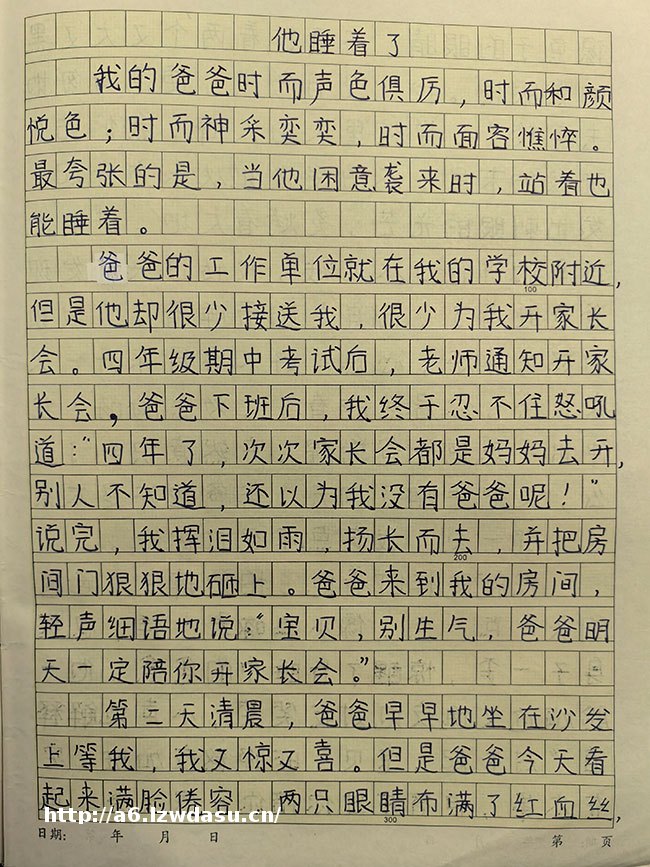 他睡着了
我的爸爸时而声色俱厉，时而和颜
悦色；时而神采奕奕，时而面容憔悴。
最夸张的是，当他困意袭来时，站着也
能睡着。
爸爸的工作单位就在我的学校附近，
100
但是他却很少接送我，很少为我开家长
会。四年级期中考试后，老师通知开家
长会，爸爸下班后，我终于忍不住怒吼
道：“四年了，次次家长会都是妈妈去开，
别人不知道，还以为我没有爸爸呢！”
说完，我挥泪如雨，扬长而去，并把房
200
间门狠狠地砸上。爸爸来到我的房间，
轻声细语地说：“宝贝，别生气，爸爸明
天一定陪你开家长会。”
第二天清晨，爸爸早早地坐在沙发
上等我，我又惊又喜。但是爸爸今天看
起来满脸倦容，两只眼睛布满了红血丝，
http://a6.lzwdasu.cn/
300
日期： 年 月 日 第 页